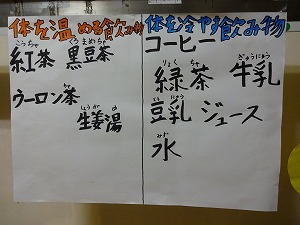 体を温める飲み物
こうちゃ くろまめちゃ
紅茶 黒豆茶
ちゃ
ウーロン茶
しょうが ゆ
生姜湯
体を冷やす飲み物
コーヒー
りょく ちゃ ぎゅうにゅう
緑茶 牛乳
とうにゅう
豆乳 ジュース
みず
水